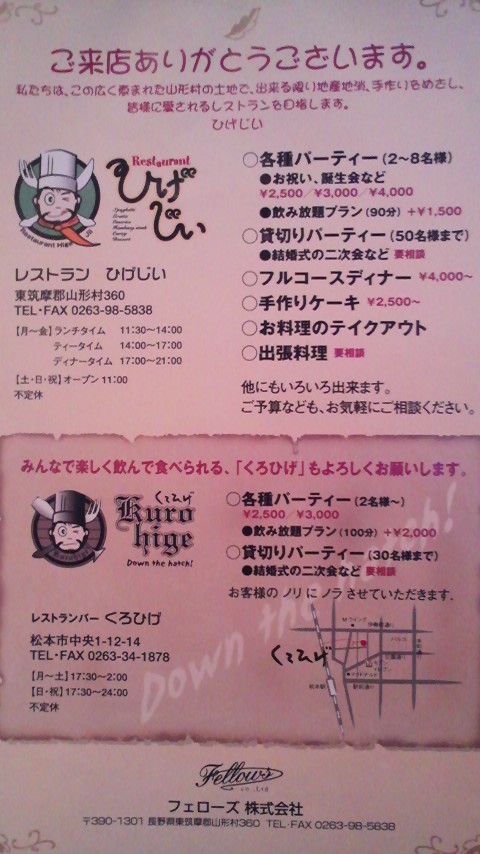 ご来店ありがとうございます。
私たちは、この広く恵まれた山形村の土地で、出来る限り地産地消、手作りをめざし、
皆様に愛されるレストランを目指します。
ひげじい
Restaurant
ひげじい
レストラン ひげじい
東筑摩郡山形村360
TEL・FAX 0263-98-5838
【月〜金】ランチタイム 11:30〜14:00
ティータイム 14:00〜17:00
ディナータイム 17:00〜21:00
【土・日・祝】オープン 11:00
不定休
○各種パーティー(2〜8名様)
●お祝い、誕生会など
¥2,500/¥3,000/¥4,000
●飲み放題プラン(90分) +¥1,500
○貸切りパーティー(50名様まで)
●結婚式の二次会など 要相談
○フルコースディナー ¥4,000〜
○手作りケーキ ¥2,500〜
○お料理のテイクアウト
○出張料理 要相談
他にもいろいろ出来ます。
ご予算なども、お気軽にご相談ください。
みんなで楽しく飲んで食べられる、「くろひげ」もよろしくお願いします。
くろひげ
Kuro
hige
Down the hatch!
レストランバー くろひげ
松本市中央1-12-14
TEL・FAX 0263-34-1878
【月〜土】17:30〜2:00
【日・祝】17:30〜24:00
不定休
○各種パーティー(2名様〜)
¥2,500/¥3,000
●飲み放題プラン(100分) +¥2,000
○貸切りパーティー(30名様まで)
●結婚式の二次会など 要相談
お客様の ノリ に ノラ させていただきます.
くろひげ
パルコ
松本駅
駅前通り
Down the hatch!
Fellows
co.,Ltd
フェローズ 株式会社
〒390-1301 長野県東筑摩郡山形村360 TEL・FAX 0263-98-5838